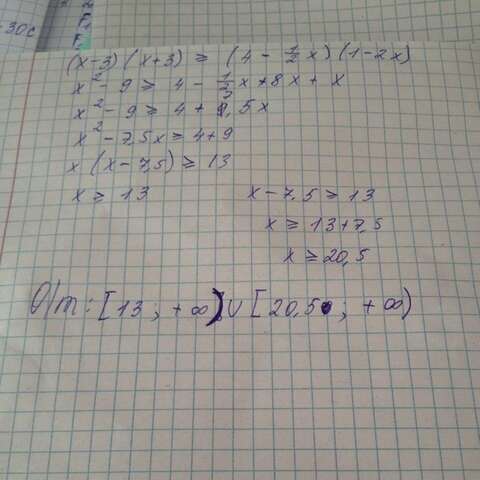 30c
(x-3)(x+3) ≥ (4 - 1/2 x)(1-2x)
x² - 9 ≥ 4 - 1/2 x + 8x + x
x² - 9 ≥ 4 + 8,5x
x² - 7,5x ≥ 4+9
x (x-7,5) ≥ 13
x ≥ 13
x - 7,5 ≥ 13
x ≥ 13+7,5
x ≥ 20,5
Отт: [13 ; +∞) ∪ [20,5 ; +∞)